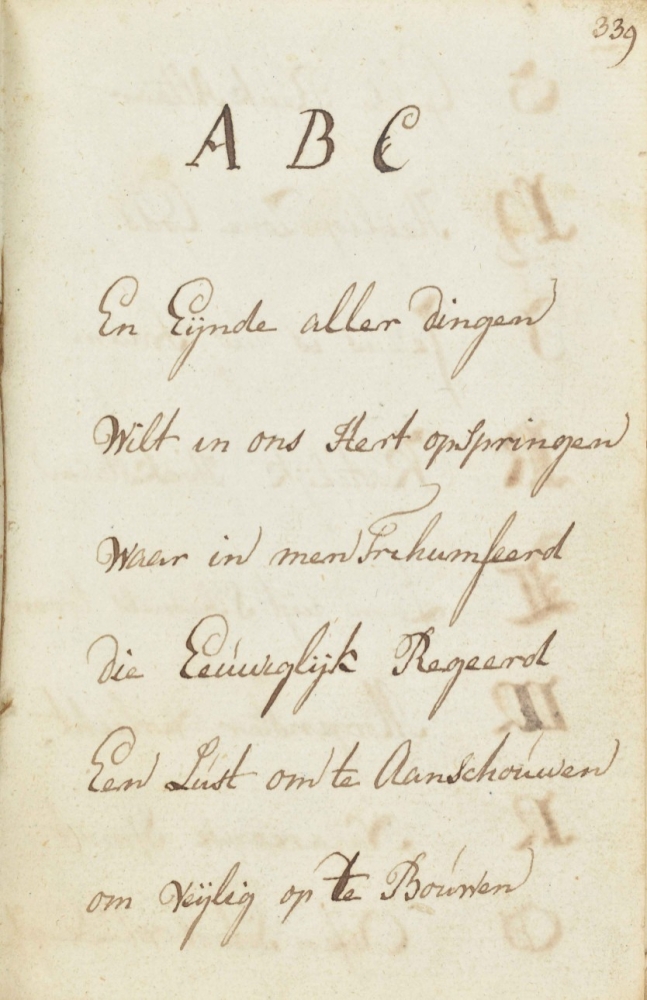 339
A B C
En Eijnde aller dingen
Wilt in ons Hert opspringen
Waar in men Trihumfeerd
die Eeúwiglijk Regeerd
Een Lúst om te Aanschoúwen
om Veijlig op te Boúwen